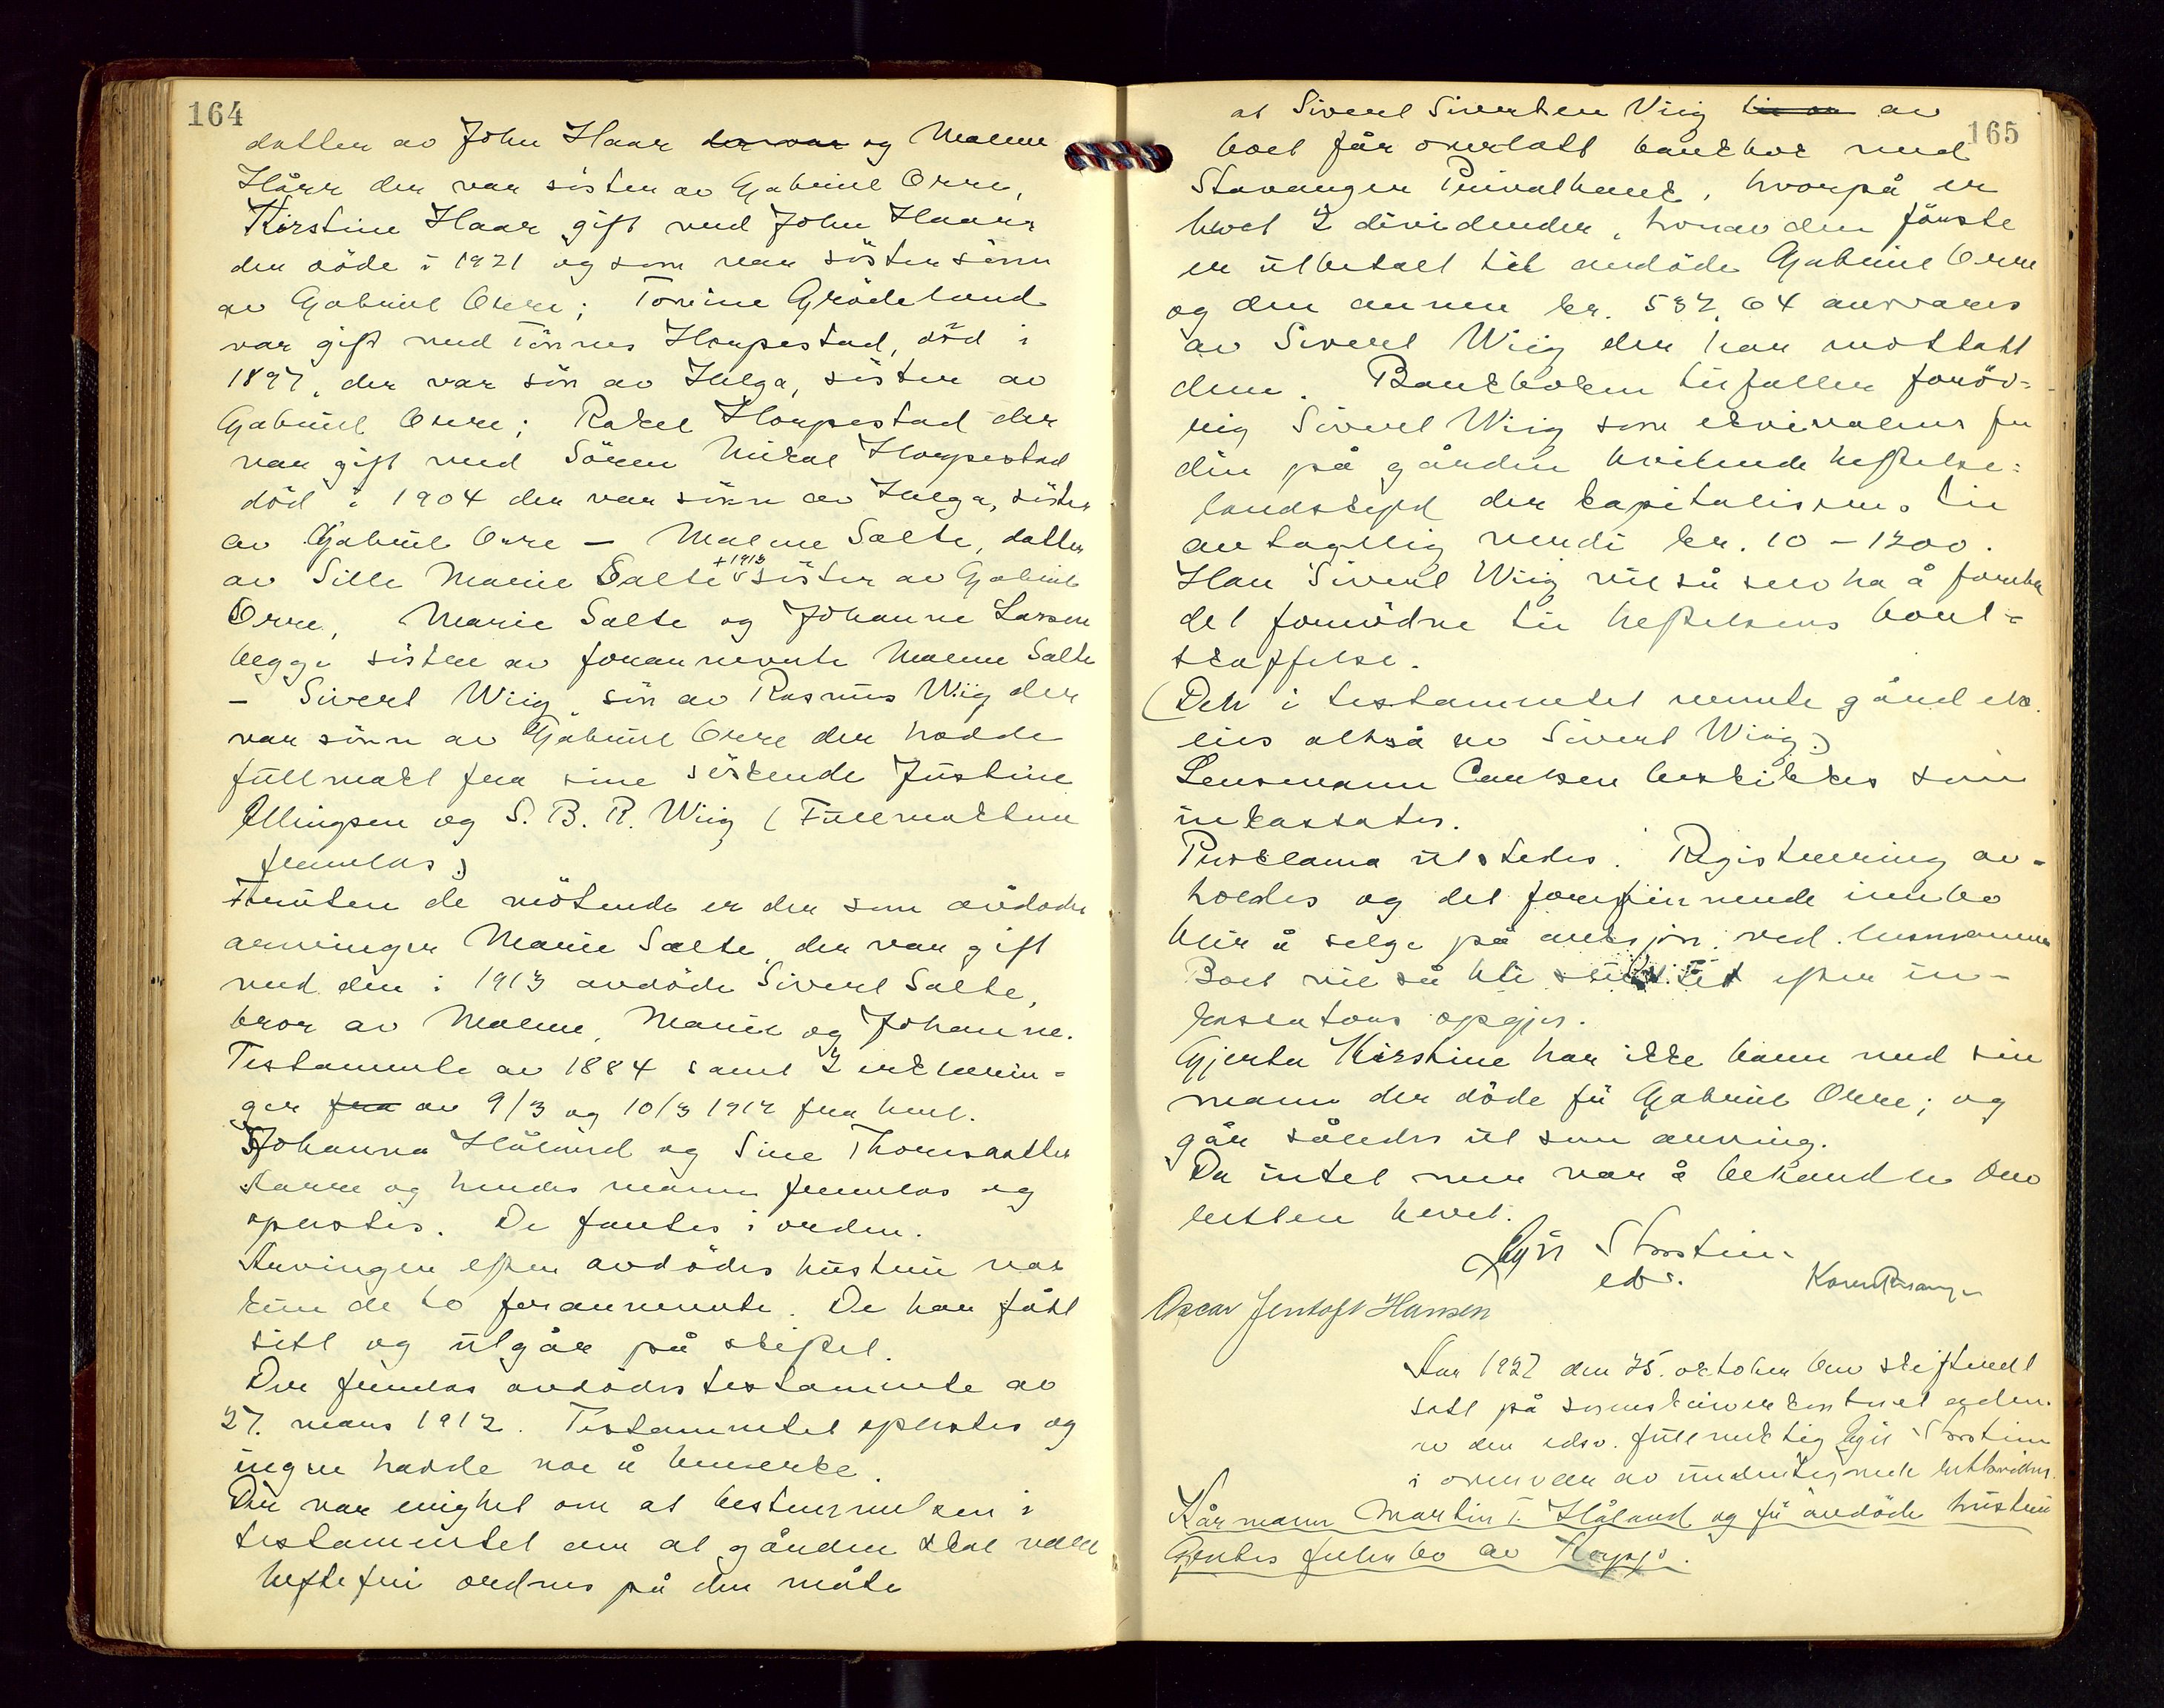 164
datter av John Haar der var og Malene
Hårr der var søster av Gabriel Orre,
Kirstine Haar gift med John Haarr
der døde i 1921 og som var søstersønn
av Gabriel Orre; Torine Grødeland
var gift med Tønnes Horpestad, død i
1897, der var søn av Helga, søster av
Gabriel Orre; Rakel Horpestad der
var gift med Sören Mikal Horpestad
död i 1904 der var sönn av Helga, söster
av Gabriel Orre — Malene Salte, datter
av Sille Marie Salte +1913 søster av Gabriel
Orre, Marie Salte og Johanne Larsen
begge søstre av forannevnte Malene Salte
- Sivert Wiig, søn av Rasmus Wiig der
var sönn av Gabriel Orre der hadde
fullmakt fra sine söskende Justine
Ellingsen og S. B. R. Wiig (Fullmakten
fremlas)
Foruten de møtende er der som avdødes
arvinger Marie Salte, der var gift
med den i 1913 avdøde Sivert Salte,
bror av Malene, Marie og Johanne.
Testamente av 1884 samt 2 erklærin-
ger fra av 9/3 og 10/3 1912 fra henh.
Johanna Håland og Sine Thomsdatter
Karre og hendes mann fremlas og
oplestes. De fantes i orden.
Arvingen efter avdødes hustru var
kun de to forannevnte. De har fått
sitt og utgår på skiftet.
Der fremlas avdødes testamente av
27. mars 1912. Testamentet oplestes og
ingen hadde noe å bemerke.
Der var enighet om at bestemmelsen i
testamentet om at gården skal være
heftefri ordnes på den måte
165
at Sivert Sivertsen Wiig til en av
boet får overlatt bankbok med
Stavanger Privatbank, hvorpå er
hvet 2 dividender, hvorav den første
er utbetalt til avdøde Gabriel Orre
og den annen kr. 532,64 anvares
av Sivert Wiig der har mottatt
dem. Bankboken tilfaller forøv-
rig Sivert Wiig som ekvivalens for
den på gården hvilende heftelse:
landskyld der kapitaliseres til
antagelig verdi kr. 10-1200.
Han Sivert Wiig vil så selv ha å foreta
det fornødne til heftelsens bort-
skaffelse.
(Den i testamentet nevnte gård etc.
eies altså av Sivert Wiig.)
Lensmann Carlsen beskikkes som
inkassator.
Proklama utstedes. Registrering av-
holdes og det forefinnende innbo
blir å selge på auksjon ved lensmannen
Boet vil så bli sluttet efter in-
kassators opgjør.
Gjerta Kirstine har ikke barn med sin
mann der døde før Gabriel Orre; og
går således ut som arving.
Da intet mer var å behandle blev
retten hevet.
Egil Storstein
edsv.
Karen
Oscar Jentoft Hansen
Aar 1922 den 25. oktober blev skifterett
satt på sorenskriverkontoret adm.
av den edsv. fullmektig Egil Storstein
i overvær av undertegnede rettsvidner.
Kårmann Martin T. Håland og før avdøde hustru
Gjertes fellesbo av